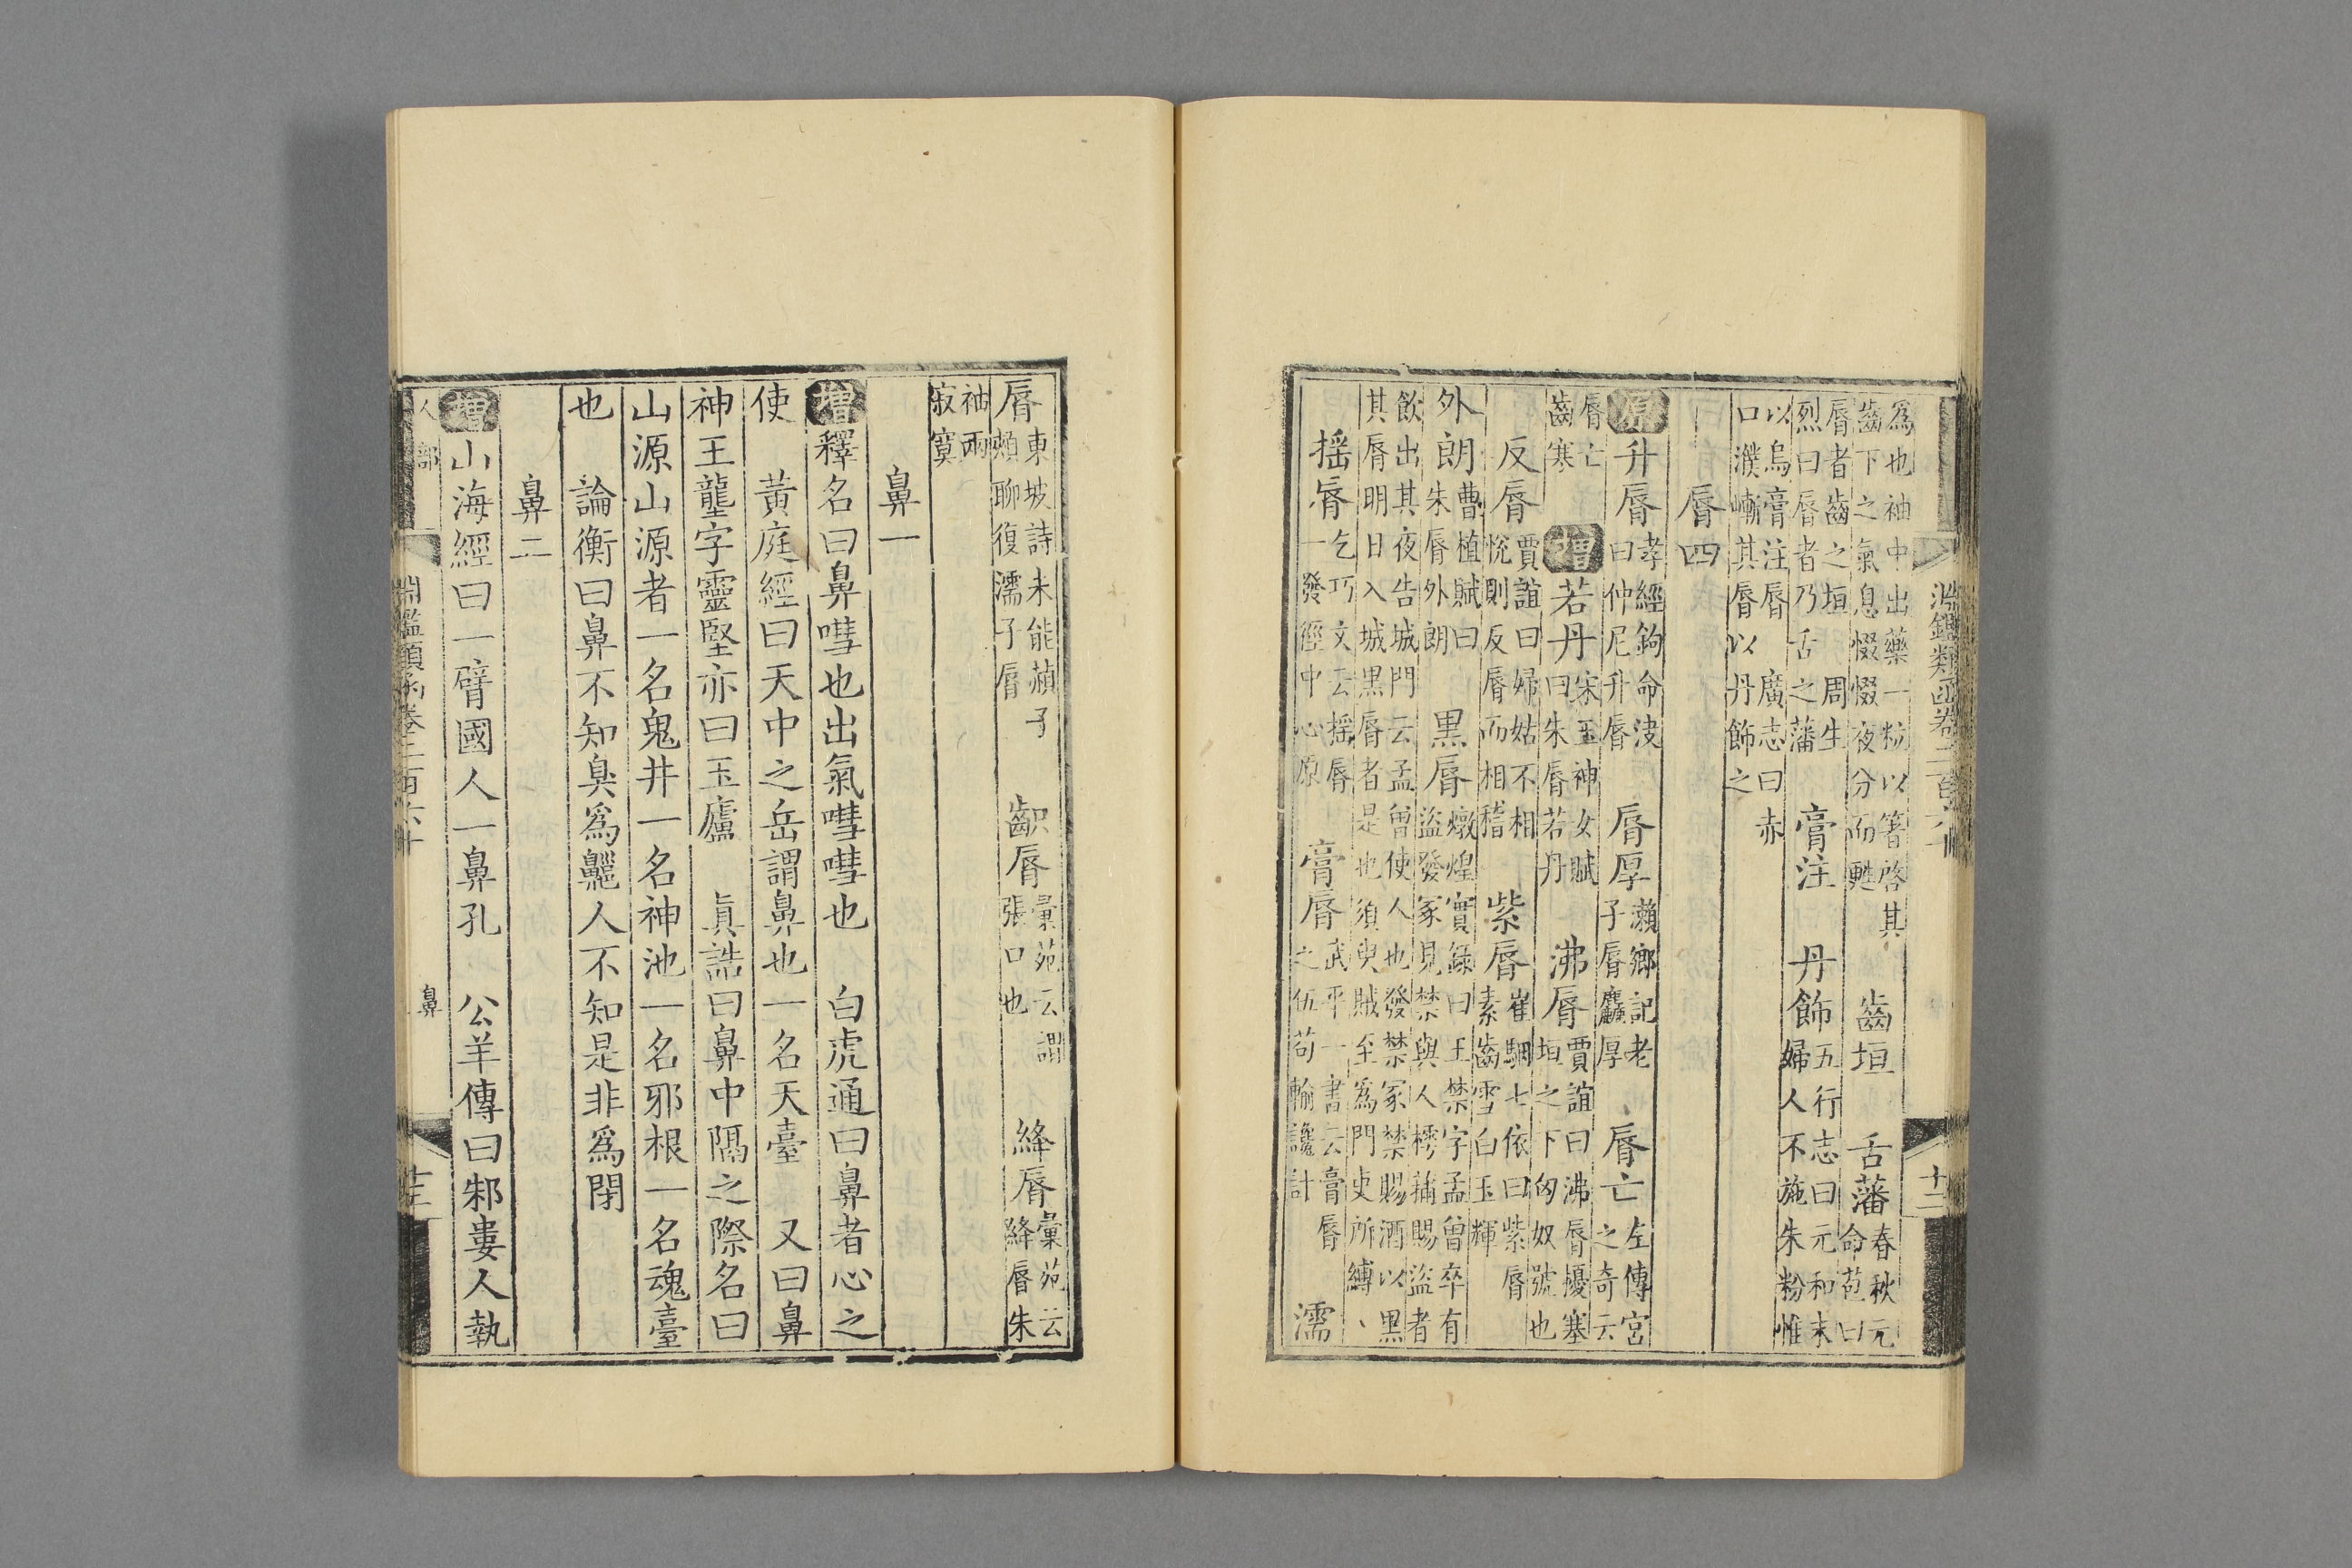 淵鑑類函卷二百六十　十二
爲也袖中出藥一粒以箸啓其
齒下之氣息惙惙夜分而甦　齒垣　舌藩春秋元
命苞曰
脣者齒之垣　周生
烈曰脣者乃舌之藩　膏注　丹飾五行志曰元和末
婦人不施朱粉惟
以烏膏注脣　廣志曰赤
口濮嶃其脣以丹飾之
脣四
原升脣孝經鉤命決
曰仲尼升脣　脣厚瀨鄉記老
子脣麤厚　脣亡左傳宮
之奇云
脣亡
齒寒　增若丹宋玉神女賦
曰朱脣若丹　沸脣賈誼曰沸脣擾塞
垣之下匈奴號也
反脣賈誼曰婦姑不相
悅則反脣而相稽　紫脣崔駰七依曰紫脣
素齒雪白玉輝
外朗曹植賦曰
朱脣外朗　黑脣燉煌實錄曰王禁字孟曾卒有
盜發冢見禁與人樗蒱賜盜者
飲出其夜告城門云孟曾使人也發禁冢禁賜酒以黑
其脣明日入城黑脣者是也須臾賊至爲門吏所縛、
揺脣乞巧文云揺脣
一發徑中心原　膏脣武平一書云膏脣
之伍苟輸讒計　濡
脣東坡詩未能蘋子
頰聊復濡子脣　齞脣彙苑云謂
張口也　絳脣彙苑云
絳脣朱
袖兩
寂寞
鼻一
增釋名曰鼻嘒也出氣嘒嘒也　白虎通曰鼻者心之
使　黃庭經曰天中之岳謂鼻也一名天臺　又曰鼻
神王龏字靈堅亦曰玉廬　眞誥曰鼻中隔之際名曰
山源山源者一名鬼井一名神池一名邪根一名魂臺
也　論衡曰鼻不知臭爲齆人不知是非爲閉
鼻二
增山海經曰一臂國人一鼻孔　公羊傳曰邾婁人執
人部　淵鑑類函卷二百六十　鼻　十三